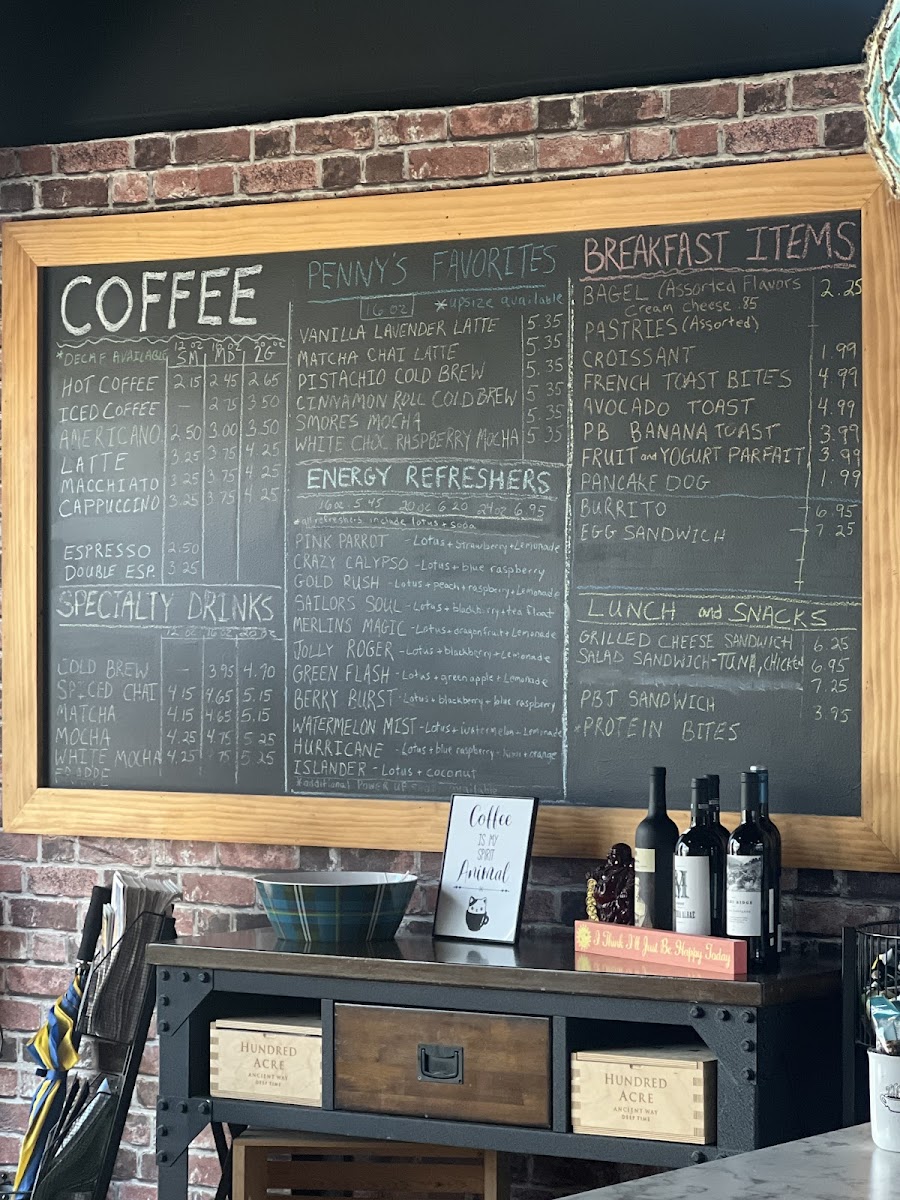 COFFEE
*DECAF AVAILABLE 12 oz SM 16 oz MD 20 oz LG
HOT COFFEE 2.15 2.45 2.65
ICED COFFEE — 2.75 3.50
AMERICANO 2.50 3.00 3.50
LATTE 3.25 3.75 4.25
MACCHIATO 3.25 3.75 4.25
CAPPUCCINO 3.25 3.75 4.25
ESPRESSO 2.50
DOUBLE ESP. 3.25
SPECIALTY DRINKS
12 oz 16 oz 20 oz
COLD BREW — 3.95 4.70
SPICED CHAI 4.15 4.65 5.15
MATCHA 4.15 4.65 5.15
MOCHA 4.25 4.75 5.25
WHITE MOCHA 4.25 .75 5.25
PENNY'S FAVORITES
16 oz *upsize available
VANILLA LAVENDER LATTE 5.35
MATCHA CHAI LATTE 5.35
PISTACHIO COLD BREW 5.35
CINNAMON ROLL COLD BREW 5.35
SMORES MOCHA 5.35
WHITE CHOC RASPBERRY MOCHA 5.35
ENERGY REFRESHERS
16oz 5.45 20oz 6.20 24oz 6.95
*all refreshers include lotus + soda
PINK PARROT - Lotus + Strawberry + Lemonade
CRAZY CALYPSO - Lotus + blue raspberry
GOLD RUSH - Lotus + peach + raspberry + Lemonade
SAILORS SOUL - Lotus + blackbirry + tea float
MERLINS MAGIC - Lotus + dragonfruit + Lemonade
JOLLY ROGER - Lotus + blackberry + Lemonade
GREEN FLASH - Lotus + green apple + Lemonade
BERRY BURST - Lotus + blackberry + blue raspberry
WATERMELON MIST - Lotus + Watermelon + Lemonade
HURRICANE - Lotus + blue raspberry - kiwi + orange
ISLANDER - Lotus + coconut
*additional POWER UP available
BREAKFAST ITEMS
BAGEL (Assorted Flavors 2.25
Cream cheese .85
PASTRIES (Assorted)
CROISSANT 1.99
FRENCH TOAST BITES 4.99
AVOCADO TOAST 4.99
PB BANANA TOAST 3.99
FRUIT and YOGURT PARFAIT 3.99
PANCAKE DOG 1.99
BURRITO 6.95
EGG SANDWICH 7.25
LUNCH and SNACKS
GRILLED CHEESE SANDWICH 6.25
SALAD SANDWICH-TUNA, CHICKEN 6.95
7.25
PBJ SANDWICH 3.95
*PROTEIN BITES
Coffee
IS MY
SPIRIT
Animal
I Think I'll Just Be Happy Today
HUNDRED
ACRE
ANCIENT WAY
DEEP TIME
HUNDRED
ACRE
ANCIENT WAY
DEEP TIME